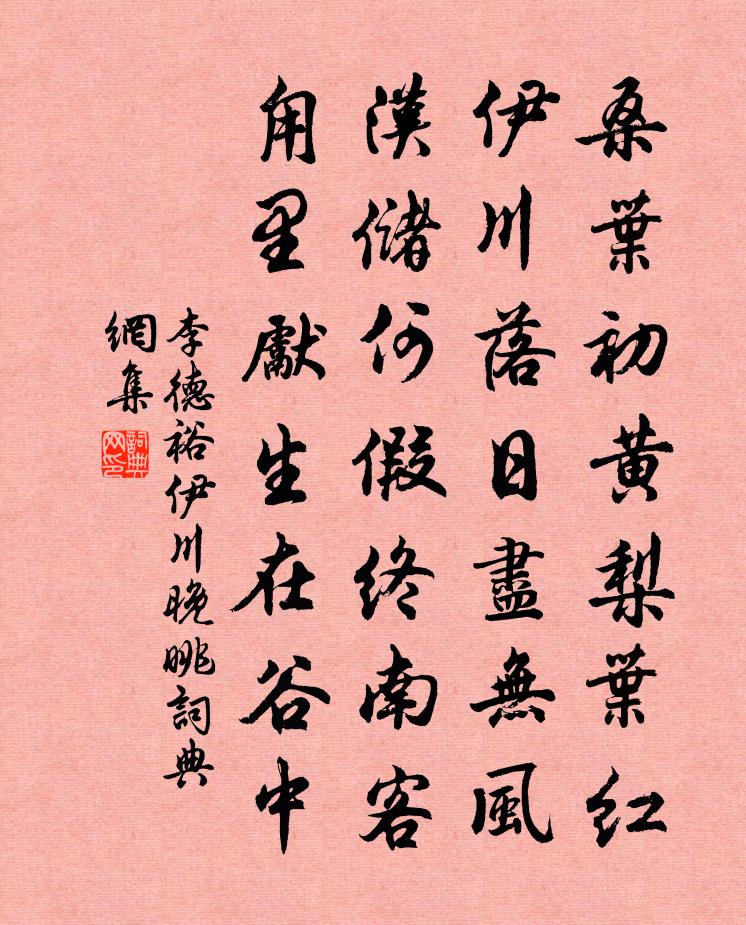 桑葉初黃梨葉紅
伊川落日盡無風
漢儲何假終南客
甪里獻生在谷中
李德裕伊川晚眺詞典
網集
詞典
网印